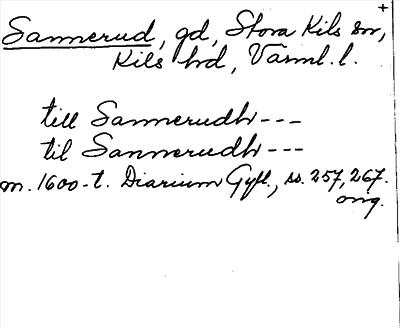 +
Sannerud, gd, Stora Kils sn,
Kils hd, Värml. l.
till Sannerudh ---
til Sannerudh ---
m. 1600-t. Diarium Gyll., ss. 257, 267.
orig.